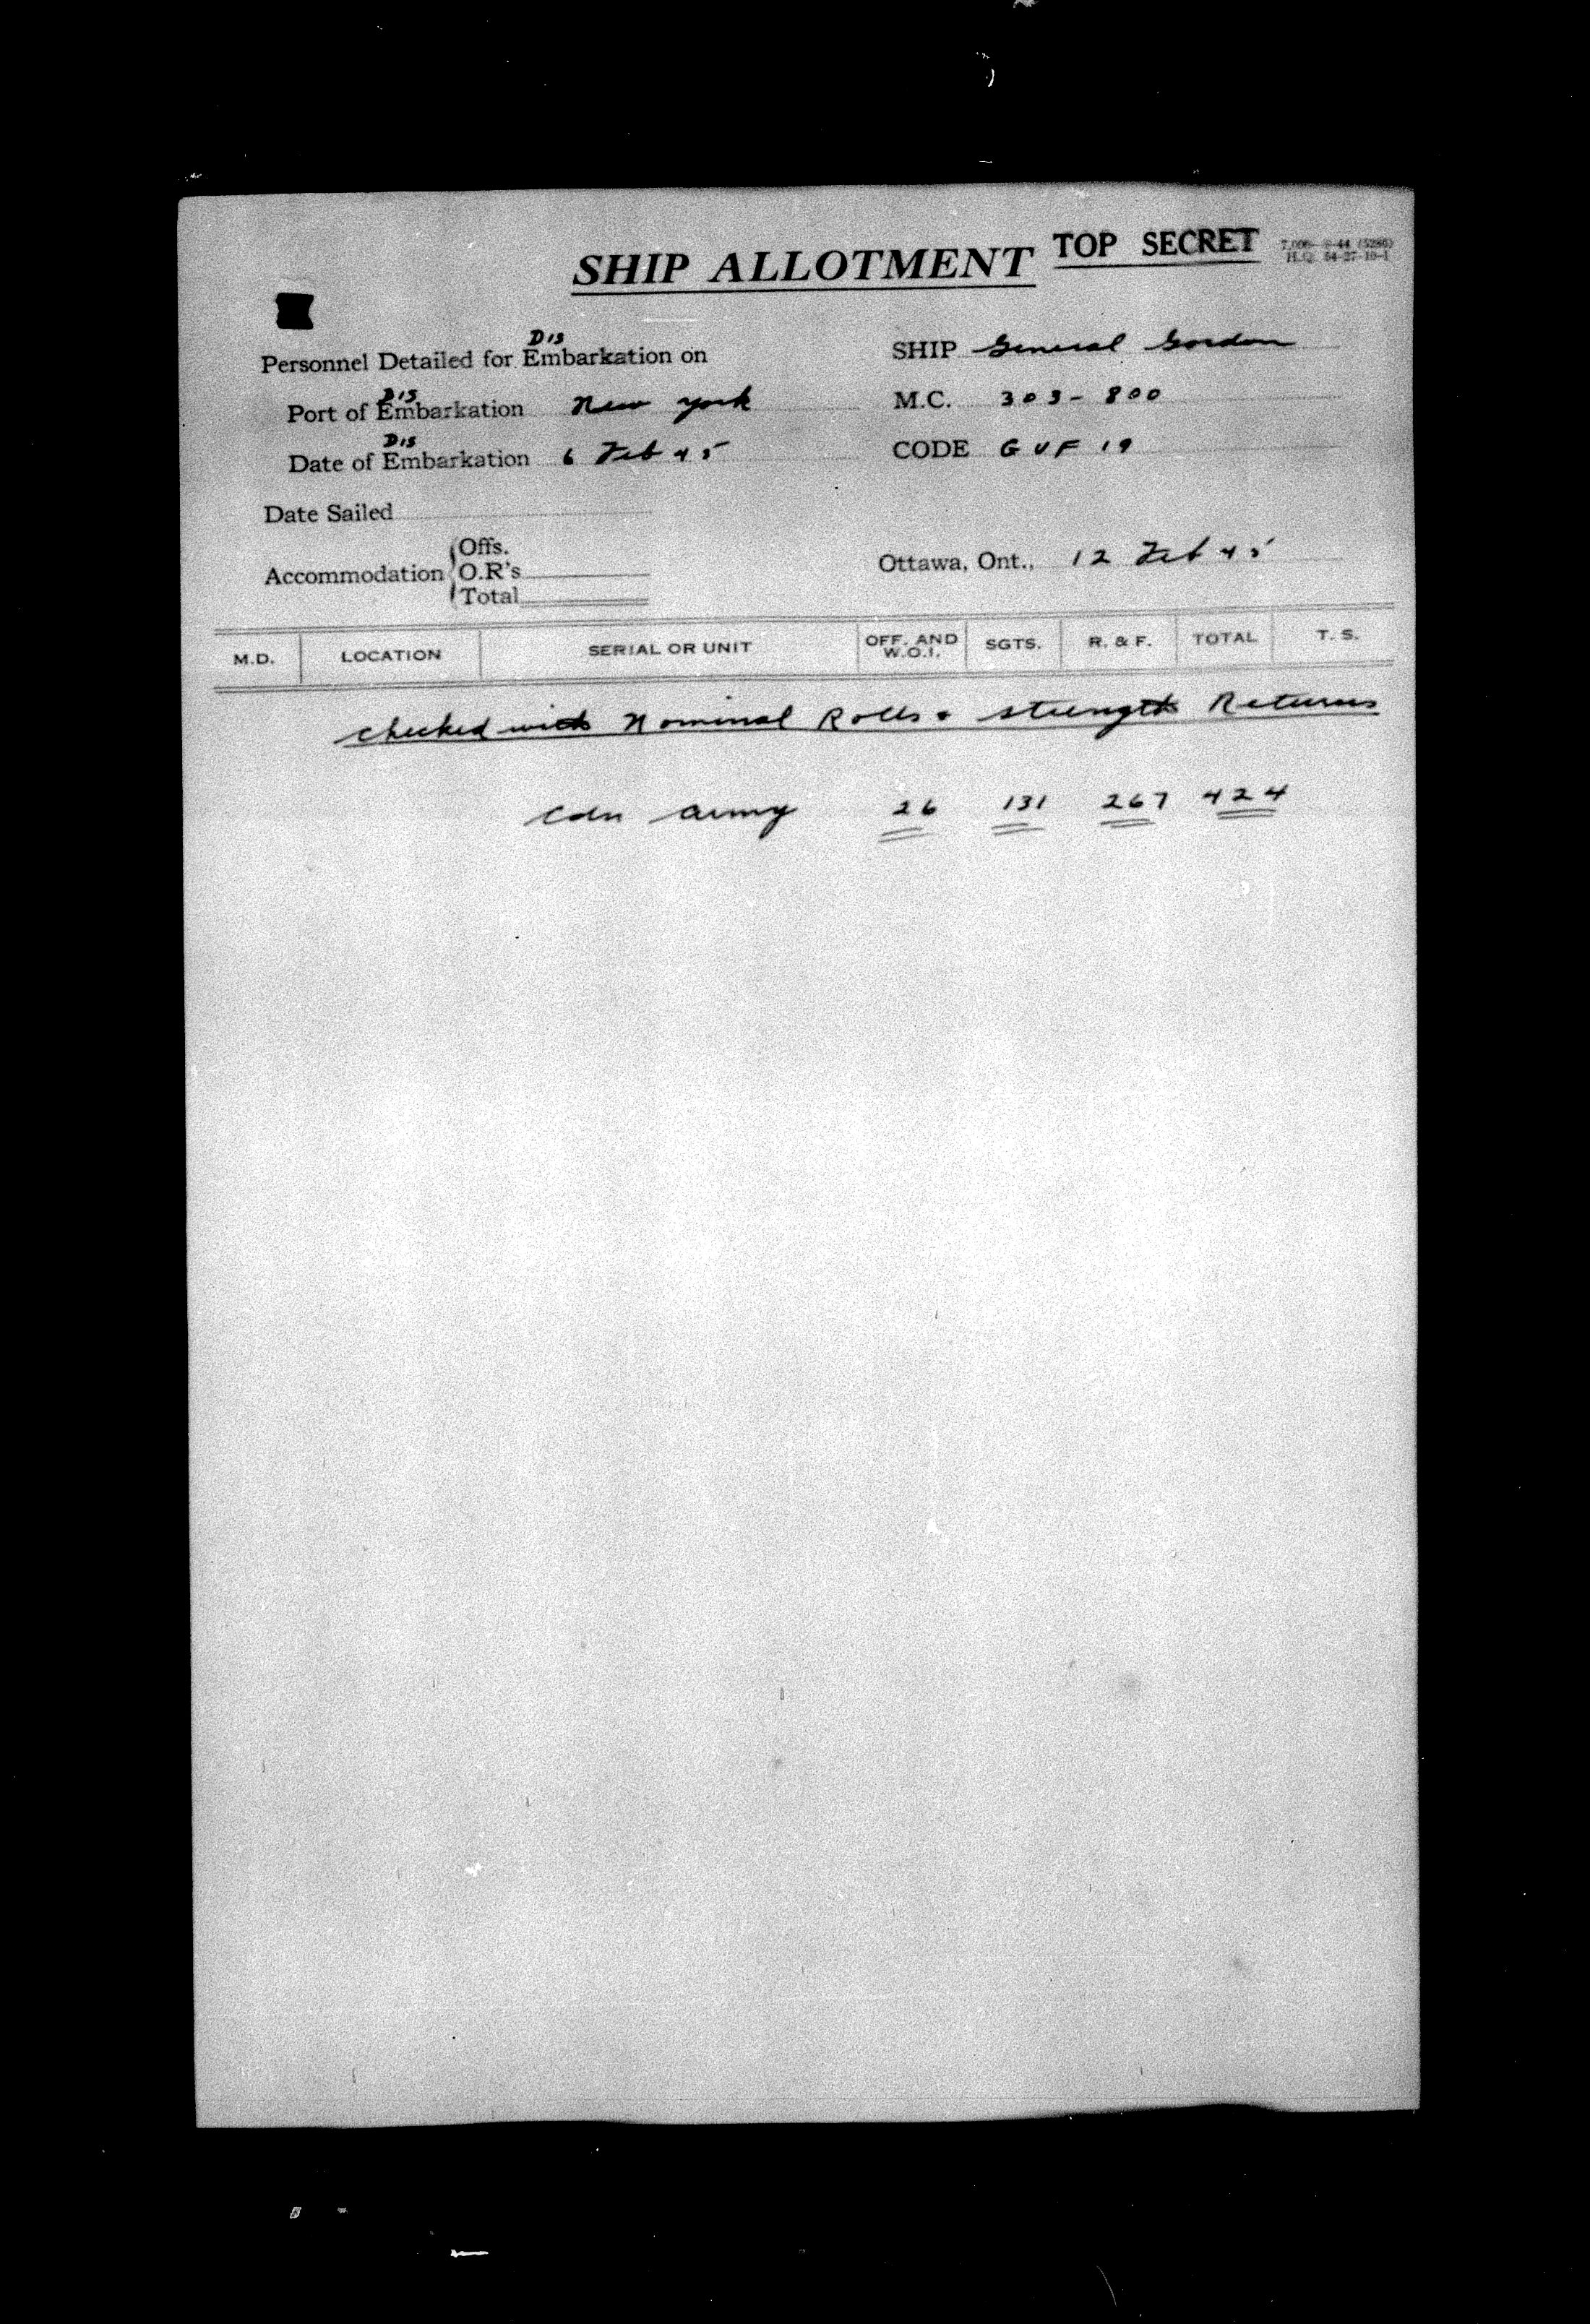 SHIP ALLOTMENT TOP SECRET
7,000—8-44 (5286)
H.Q. 54-27-10-1
Dis
Personnel Detailed for Embarkation on
SHIP General Gordon
Dis
Port of Embarkation New York
M.C. 303-800
Dis
Date of Embarkation 6 Feb 45
CODE GUF 19
Date Sailed
Accommodation Offs.
O.R's
Total
Ottawa, Ont., 12 Feb 45
M.D. LOCATION SERIAL OR UNIT OFF. AND W.O.I. SGTS. R. & F. TOTAL T. S.
Checked with Nominal Rolls & strength Returns
Cdn Army 26 131 267 424